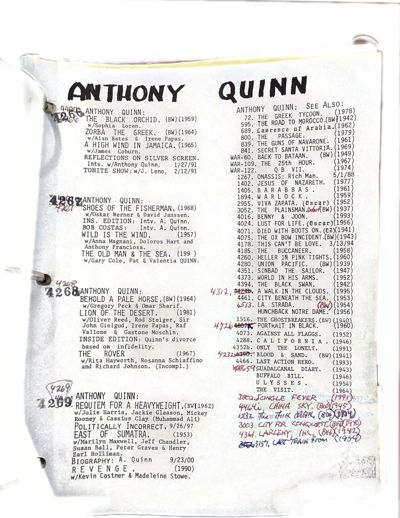 ANTHONY QUINN
4266
ANTHONY QUINN:
THE BLACK ORCHID. (BW)(1959)
w/Sophia Loren.
ZORBA THE GREEK. (BW)(1964)
w/Alan Bates & Irene Papas.
A HIGH WIND IN JAMAICA. (1965)
w/James Coburn.
REFLECTIONS ON SILVER SCREEN.
Int. w/Anthony Quinn. 1/27/91
TONITE SHOW:w/J. Leno. 2/2/1968
4267
ANTHONY QUINN:
SHOES OF THE FISHERMAN. (1968)
w/Oskar Werner & David Janssen.
INS. EDITION: Intv. A. Quinn.
BOB COSTAS: Intv. A. Quinn.
WILD IS THE WIND. (1957)
w/Anna Magnani, Doloros Hart and
Anthony Franciosa.
THE OLD MAN & THE SEA. (199 )
w/Gary Cole, Pat & Valentia QUINN.
4268
ANTHONY QUINN:
BEHOLD A PALE HORSE. (BW)(1964)
w/Gregory Peck & Omar Sharif.
LION OF THE DESERT. (1981)
w/Oliver Reed, Rod Steiger, Sir
John Gielgud, Irene Papas, Raf
Vallone & Gastone Moschin.
INSIDE EDITION: Quinn's divorce
based on infidelity.
THE ROVER (1967)
w/Rita Hayworth, Rosanna Schiaffino
and Richard Johnson. (Incompl.)
4269
4269
ANTHONY QUINN:
REQUIEM FOR A HEAVYWEIGHT. (BW)(1962)
w/Julie Harris, Jackie Gleason, Mickey
Rooney & Cassius Clay (Muhammad Ali)
POLITICALLY INCORRECT. 9/26/97
EAST OF SUMATRA. (1953)
w/Marilyn Maxwell, Jeff Chandler,
Susan Ball, Peter Graves & Henry
Earl Holliman.
BIOGRAPHY: A. Quinn 9/23/00
REVENGE. (1990)
w/Kevin Costner & Madeleine Stowe.
ANTHONY QUINN: SEE ALSO:
72. THE GREEK TYCOON. (1978)
595. THE ROAD TO MOROCCO.(BW)(1942)
689. Lawrence of Arabia.(1962)
800. THE PASSAGE. (1979)
839. THE GUNS OF NAVARONE. (1961)
841. SECRET SANTA VITTORIA.(1969)
WAR-60. BACK TO BATAAN. (BW)(1949)
WAR-109. THE 25th HOUR. (1967)
WAR-122. QB VII. (1974)
1267. ONASSIS: Rich Man. 5/1/88
1402. JESUS OF NAZARETH. (1977)
1405. BARABBAS. (1961)
1894. WARLOCK. (1959)
2955. VIVA ZAPATA. (Oscar) (1952)
3052. THE PLAINSMAN. (BW)(1937)
4016. BENNY & JOON.
4024. LUST FOR LIFE. (Oscar)(1956)
4071. DIED WITH BOOTS ON.(CZ)(1941)
4075. THE OX BOW INCIDENT.(BW)(1943)
4178. THIS CAN'T BE LOVE. 3/13/94
4185. THE BUCCANEER. (1958)
4260. HELLER IN PINK TIGHTS. (1960)
4280. UNION PACIFIC. (BW)(1939)
4351. SINBAD THE SAILOR. (1947)
4373. WORLD IN HIS ARMS. (1952)
4394. THE BLACK SWAN. (1942)
4312. A WALK IN THE CLOUDS. (1995)
4461. CITY BENEATH THE SEA. (1953)
4533 LA STRADA. (BW)(1954)
HUNCHBACK NOTRE DAME. (1956)
1516. THE GHOSTBREAKERS.(BW)(1940)
4726 PORTRAIT IN BLACK. (1960)
4073. AGAINST ALL FLAGS. (1952)
4288. CALIFORNIA. (1946)
4352b. ONLY THE LONELY. (1991)
4232 BLOOD & SAND. (BW)(1941)
4466. LAST ACTION HERO. (1993)
GUADALCANAL DIARY. (1943)
BUFFALO BILL. (1944)
ULYSSES. (1954)
THE VISIT. (1964)
3800 JUNGLE FEVER (1991)
4464b. CHINA SKY. (BW)(1945)
3003 CITY FOR CONQUEST.(BW)(1940)
4361. LARCENY INC. (BW)(1942)
3157, LAST TRAIN FROM (1959)